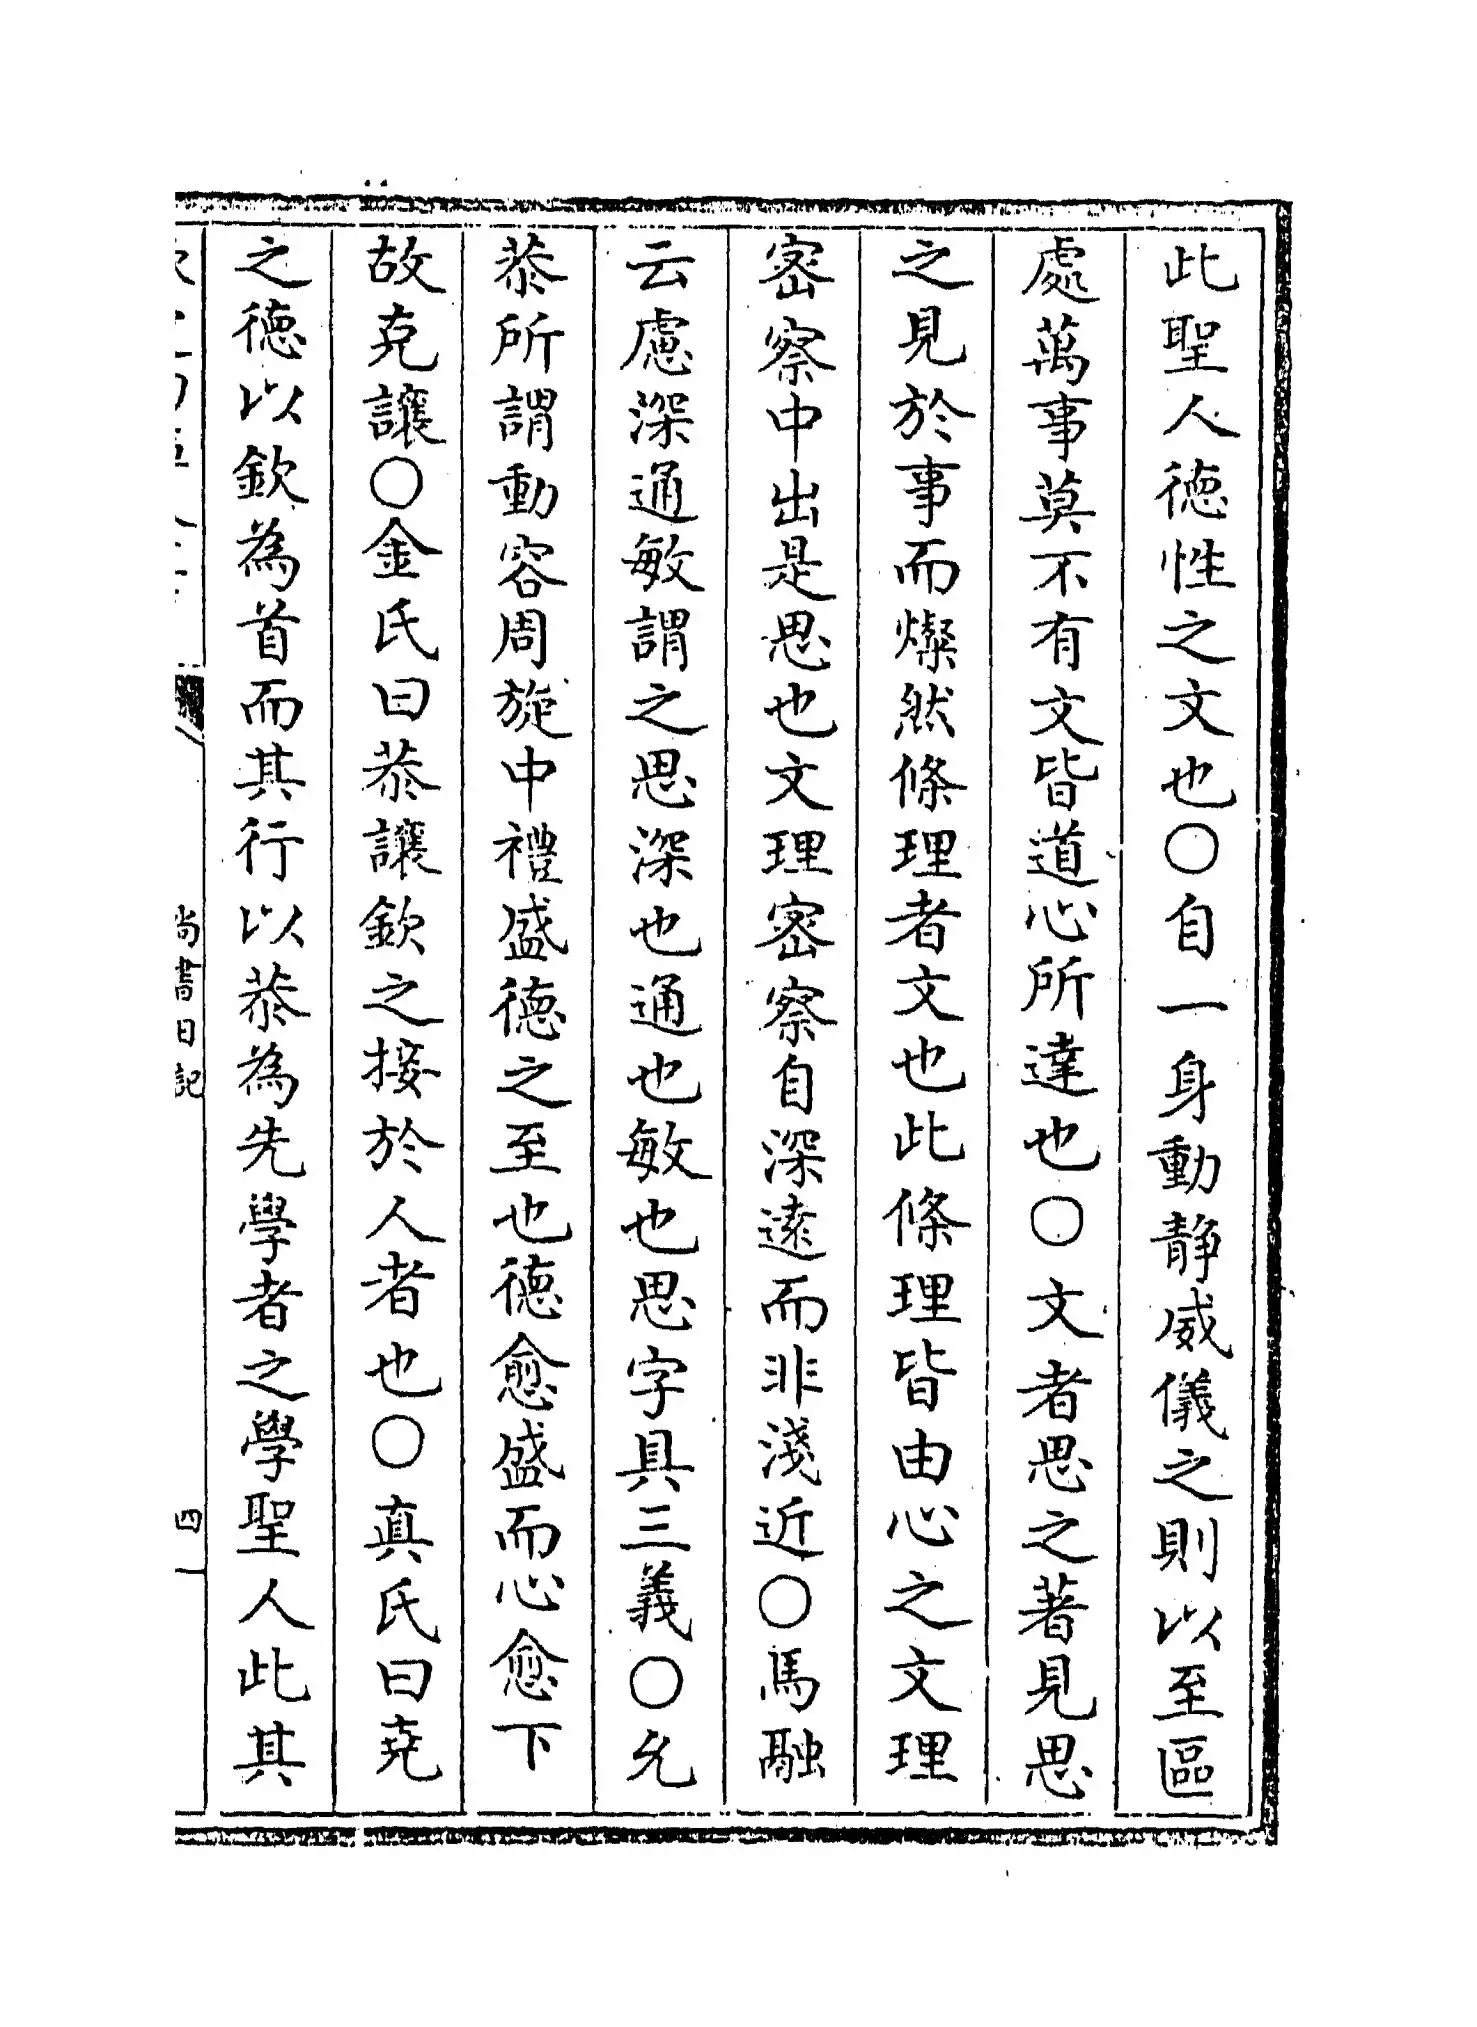 此聖人徳性之文也〇自一身動静威儀之則以至區
處萬事莫不有文皆道心所達也〇文者思之著見思
之見於事而燦然條理者文也此條理皆由心之文理
宻察中出是思也文理宻察自深逺而非淺近〇馬融
云慮深通敏謂之思深也通也敏也思字具三義〇允
恭所謂動容周旋中禮盛徳之至也徳愈盛而心愈下
故克讓〇金氏曰恭讓欽之接於人者也〇真氏曰堯
之徳以欽為首而其行以恭為先學者之學聖人此其
尚書日記
四